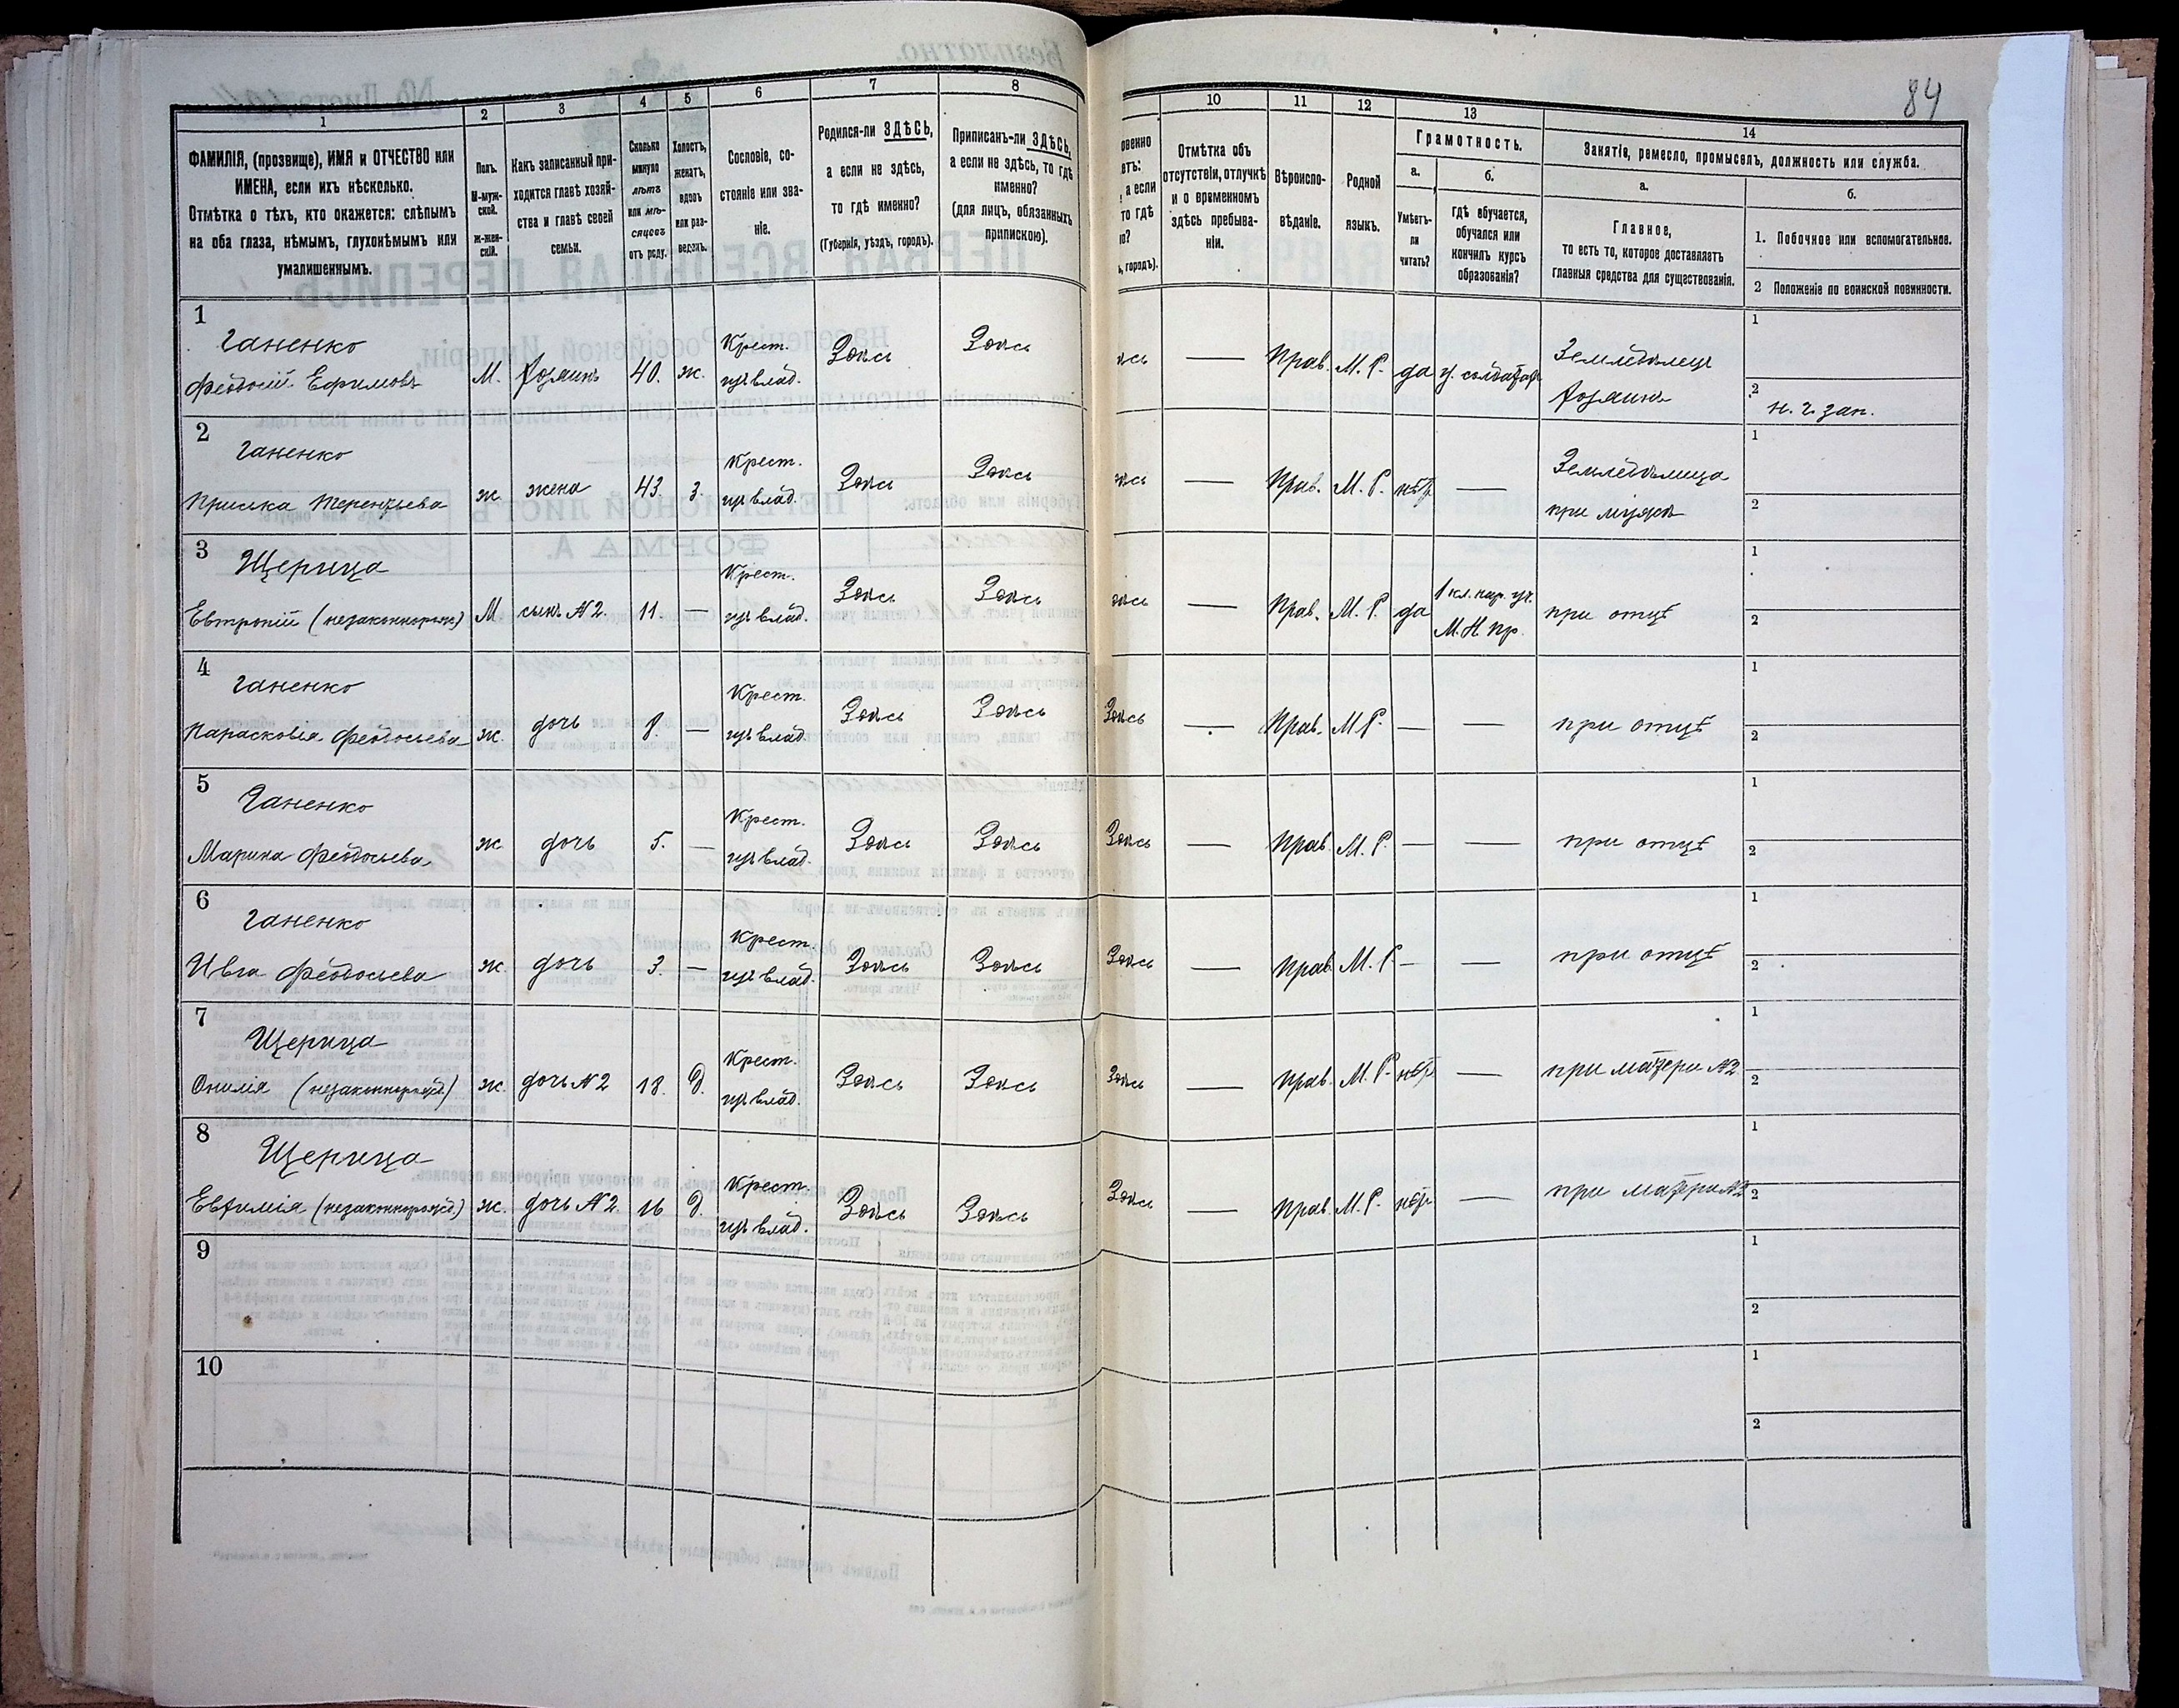 84
1
2
3
4
5
6
7
8
10
11
12
13
14
ФАМИЛІЯ, (прозвище), ИМЯ и ОТЧЕСТВО или
ИМЕНА, если ихъ нѣсколько.
Отмѣтка о тѣхъ, кто окажется: слѣпымъ
на оба глаза, нѣмымъ, глухонѣмымъ или
умалишеннымъ.
Полъ.
М-муж-
ской.
ж-жен-
скій.
Какъ записанный при-
ходится главѣ хозяй-
ства и главѣ своей
семьи.
Сколько
минуло
лѣтъ
или мѣ-
сяцевъ
отъ роду.
Холостъ,
женатъ,
вдовъ
или раз-
веденъ.
Сословіе, со-
стояніе или зва-
ніе.
Родился-ли ЗДѢСЬ,
а если не здѣсь,
то гдѣ именно?
(Губернія, уѣздъ, городъ).
Приписанъ-ли ЗДѢСЬ,
а если не здѣсь, то гдѣ
именно?
(для лицъ, обязанныхъ
припискою).
овенно
а если
то гдѣ
ь, городъ).
Отмѣтка объ
отсутствіи, отлучкѣ
и о временномъ
здѣсь пребыва-
ніи.
Вѣроиспо-
вѣданіе.
Родной
языкъ.
Грамотность.
а.
Умѣетъ-
ли
читать?
б.
гдѣ обучается,
обучался или
кончилъ курсъ
образованія?
Занятіе, ремесло, промыселъ, должность или служба.
а.
Главное,
то есть то, которое доставляетъ
главныя средства для существованія.
б.
1. Побочное или вспомогательное.
2 Положеніе по воинской повинности.
1
Ганенко
Крест.
Здѣсь
Здѣсь
Феодосій Ефимовъ
М.
хозяинъ
40.
ж.
влад.
—
Прав.
М. Р.
да
Земледѣлецъ
хозяинъ
1
2
2
Ганенко
Крест.
Приська Терентьева
ж.
жена
43.
з.
влад.
Здѣсь
Здѣсь
—
Прав.
М. Р.
нѣтъ
—
Земледѣлица
при мужѣ
1
2
3
Щерица
Крест.
Евтропій (незаконнорож)
М
сынъ №2.
11.
—
влад.
Здѣсь
Здѣсь
—
Прав.
М. Р.
да
1 кл. нар. уч.
М. Н. Пр.
при отцѣ
1
2
4
Ганенко
Крест.
Парасковія Феодосьева
ж.
дочь
8.
—
влад.
Здѣсь
Здѣсь
Здѣсь
—
Прав.
М Р.
—
—
при отцѣ
1
2
5
Ганенко
Крест.
Марина Феодосьева
ж
дочь
5.
—
влад.
Здѣсь
Здѣсь
Здѣсь
—
Прав.
М. Р.
—
—
при отцѣ
1
2
6
Ганенко
Крест.
Ивга Феодосьева
ж.
дочь
3.
—
влад.
Здѣсь
Здѣсь
Здѣсь
—
Прав.
М. Р
—
—
при отцѣ
1
2
7
Щерица
Крест.
(незаконнорожд.)
ж.
дочь №2
18.
д.
влад.
Здѣсь
Здѣсь
Здѣсь
—
Прав.
М. Р.
нѣтъ
—
при матери №2
1
2
8
Щерица
Крест.
Евфимія (незаконнорожд.)
ж.
дочь №2.
16
д.
влад.
Здѣсь
Здѣсь
Здѣсь
—
Прав.
М. Р.
нѣтъ
—
при матери №2
1
2
9
1
2
10
1
2